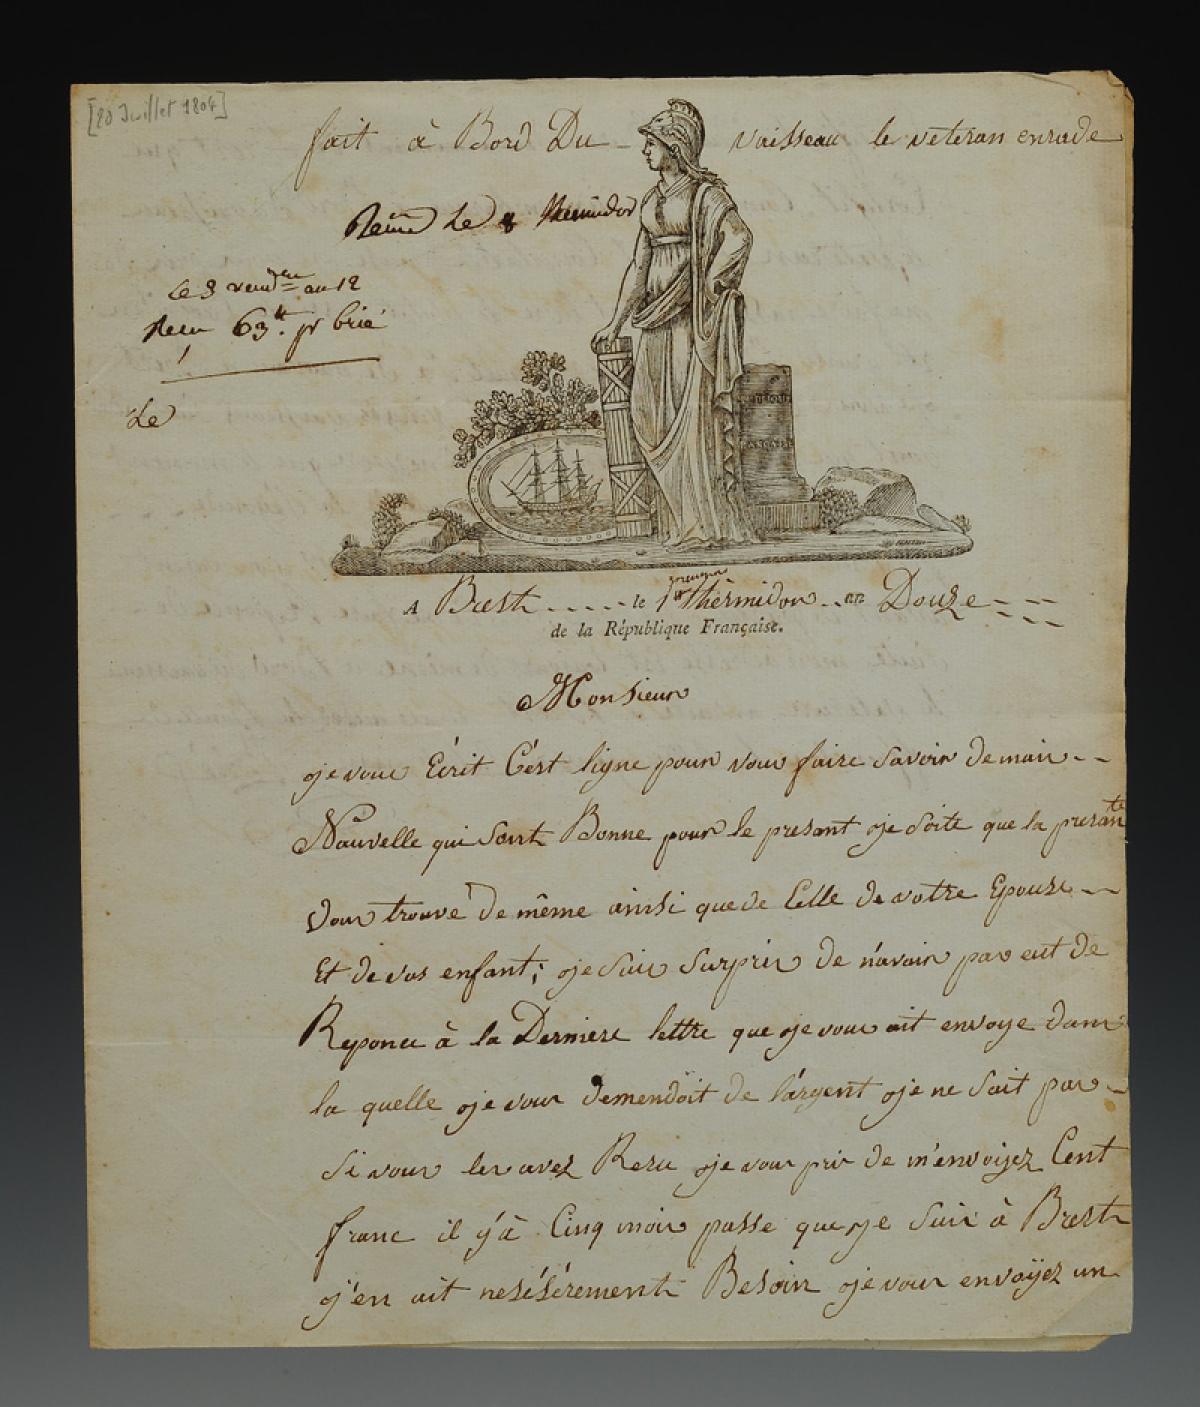 [20 Juillet 1804]
fait à Bord Du vaisseau le veteran enrade
Le 8 thermidor
Le 3 vend.re an 12
Reçu 63 pr
Le
REPUBLIQUE
FRANÇAISE
A Brest ..... le 1er thérmidor .. an Douze
de la République Française.
Monsieur
je vous Écrit C'ést ligne pour vous faire savoir de mais
Nouvelle qui sont Bonne pour le presant je soite que la presante
vous trouve de même ainsi que de Celle de votre Epouse
Et de vos enfant; je suis surpris de n'avoir pas eut de
Reponce à la Derniere lettre que je vous ait envoye dans
la quelle je vous demendoit de l'argent je ne sait pas
si vous les avez Resu je vous pris de m'envoijez Cent
franc il y'à Cinq mois passe que je suis à Brest
j'en ait nesésérement Besoin je vous envoÿez un